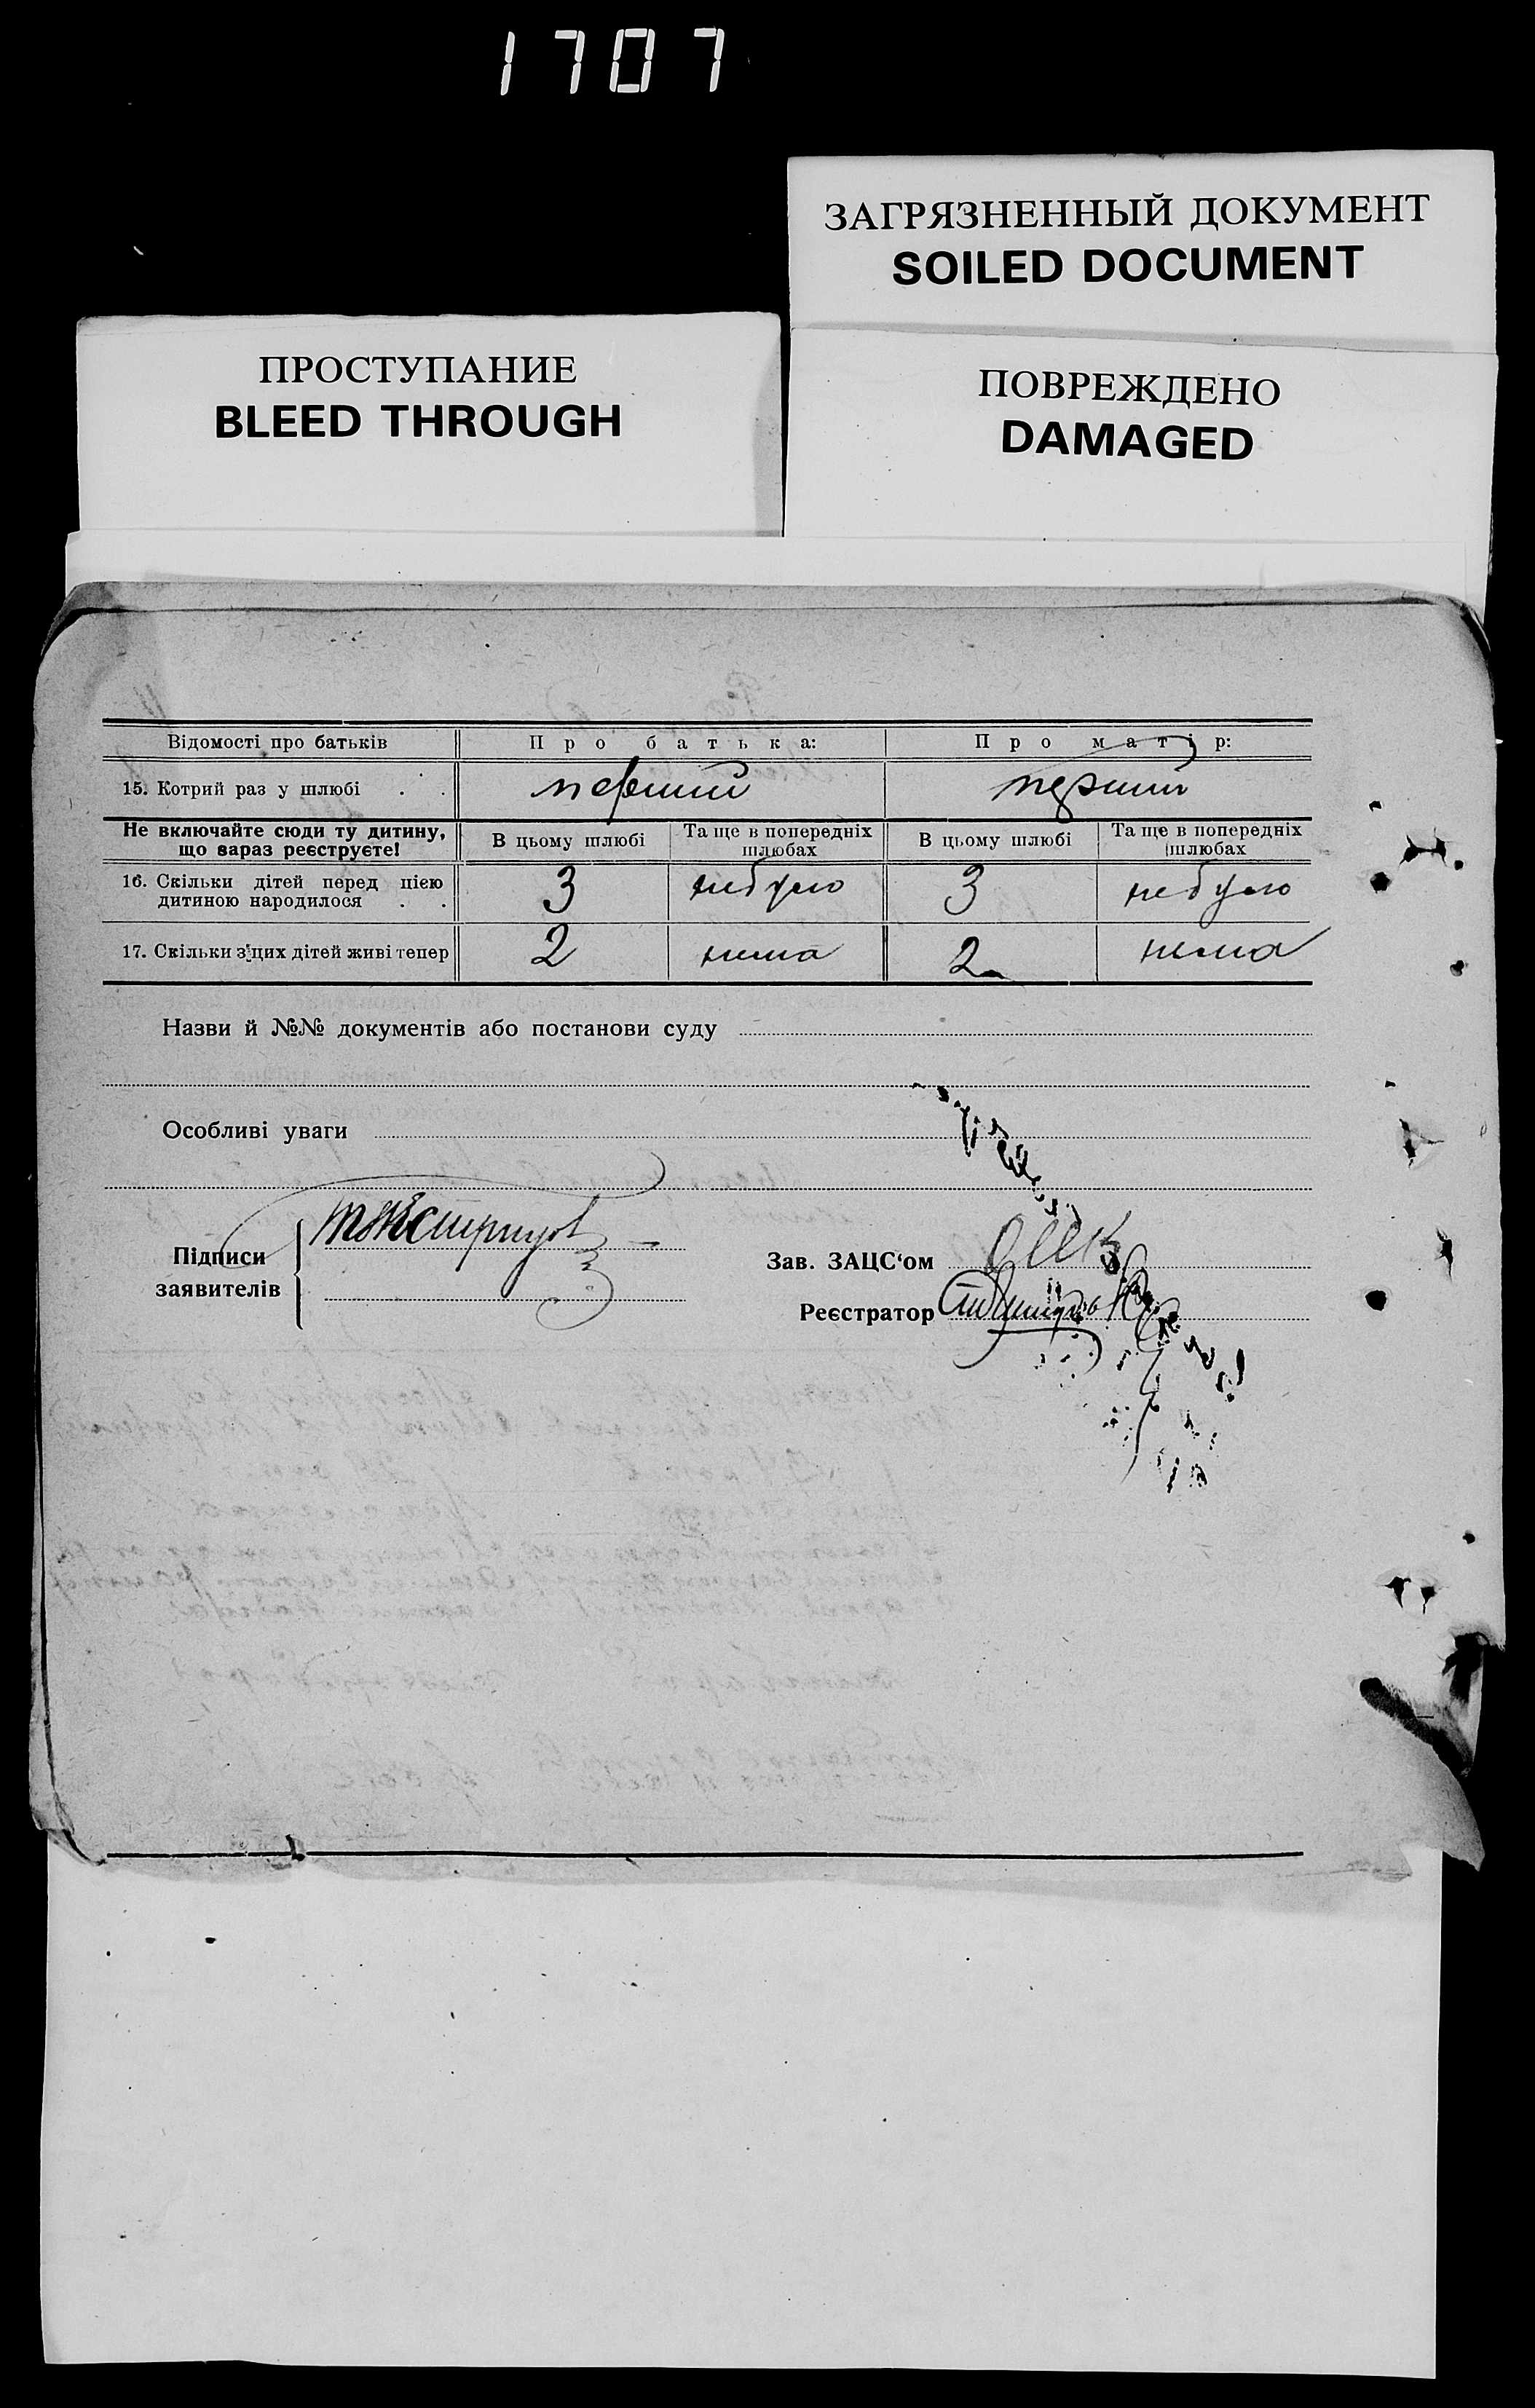 1707
ЗАГРЯЗНЕННЫЙ ДОКУМЕНТ
SOILED DOCUMENT
ПРОСТУПАНИЕ
BLEED THROUGH
ПОВРЕЖДЕНО
DAMAGED
Відомості про батьків Про батька: Про матір:
15. Котрий раз у шлюбі . . перший перший
Не включайте сюди ту дитину, що вараз реєструєте! В цьому шлюбі Та ще в попередніх шлюбах В цьому шлюбі Та ще в попередніх шлюбах
16. Скільки дітей перед цією дитиною народилося . . 3 небуло 3 небуло
17. Скільки з цих дітей живі тепер 2 нема 2 нема
Назви й №№ документів або постанови суду
Особливі уваги
Підписи заявителів
Зав. ЗАЦС‘ом
Реєстратор